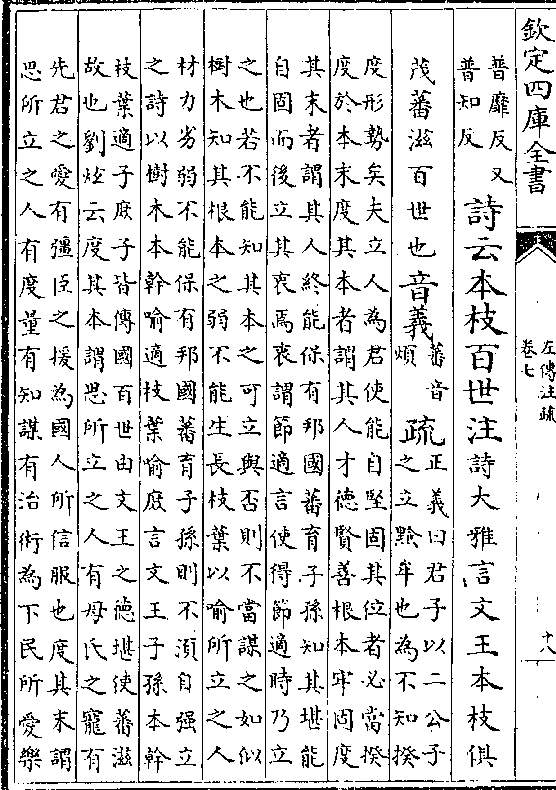 欽定四庫全書
左傳注疏
卷七
十八
普靡反又
普知反
詩云本枝百世注詩大雅言文王本枝俱
茂蕃滋百世也音義
蕃音
煩
疏
正義曰君子以二公子
之立黔牟也為不知揆
度形勢矣夫立人為君使能自堅固其位者必當揆
度於本末度其本者謂其人才德賢善根本牢固度
其末者謂其人終能保有邦國蕃育子孫知其堪能
自固而後立其衷焉衷謂節適言使得節適時乃立
之也若不能知其本之可立與否則不當謀之如似
樹木知其根本之弱不能生長枝葉以喻所立之人
材力劣弱不能保有邦國蕃育子孫則不須自强立
之詩以樹木本幹喻適枝葉喻庶言文王子孫本幹
枝葉適子庶子皆傳國百世由文王之德堪使蕃滋
故也劉炫云度其本謂思所立之人有母氏之寵有
先君之愛有彊臣之援為國人所信服也度其末謂
思所立之人有度量有知謀有治術為下民所愛樂